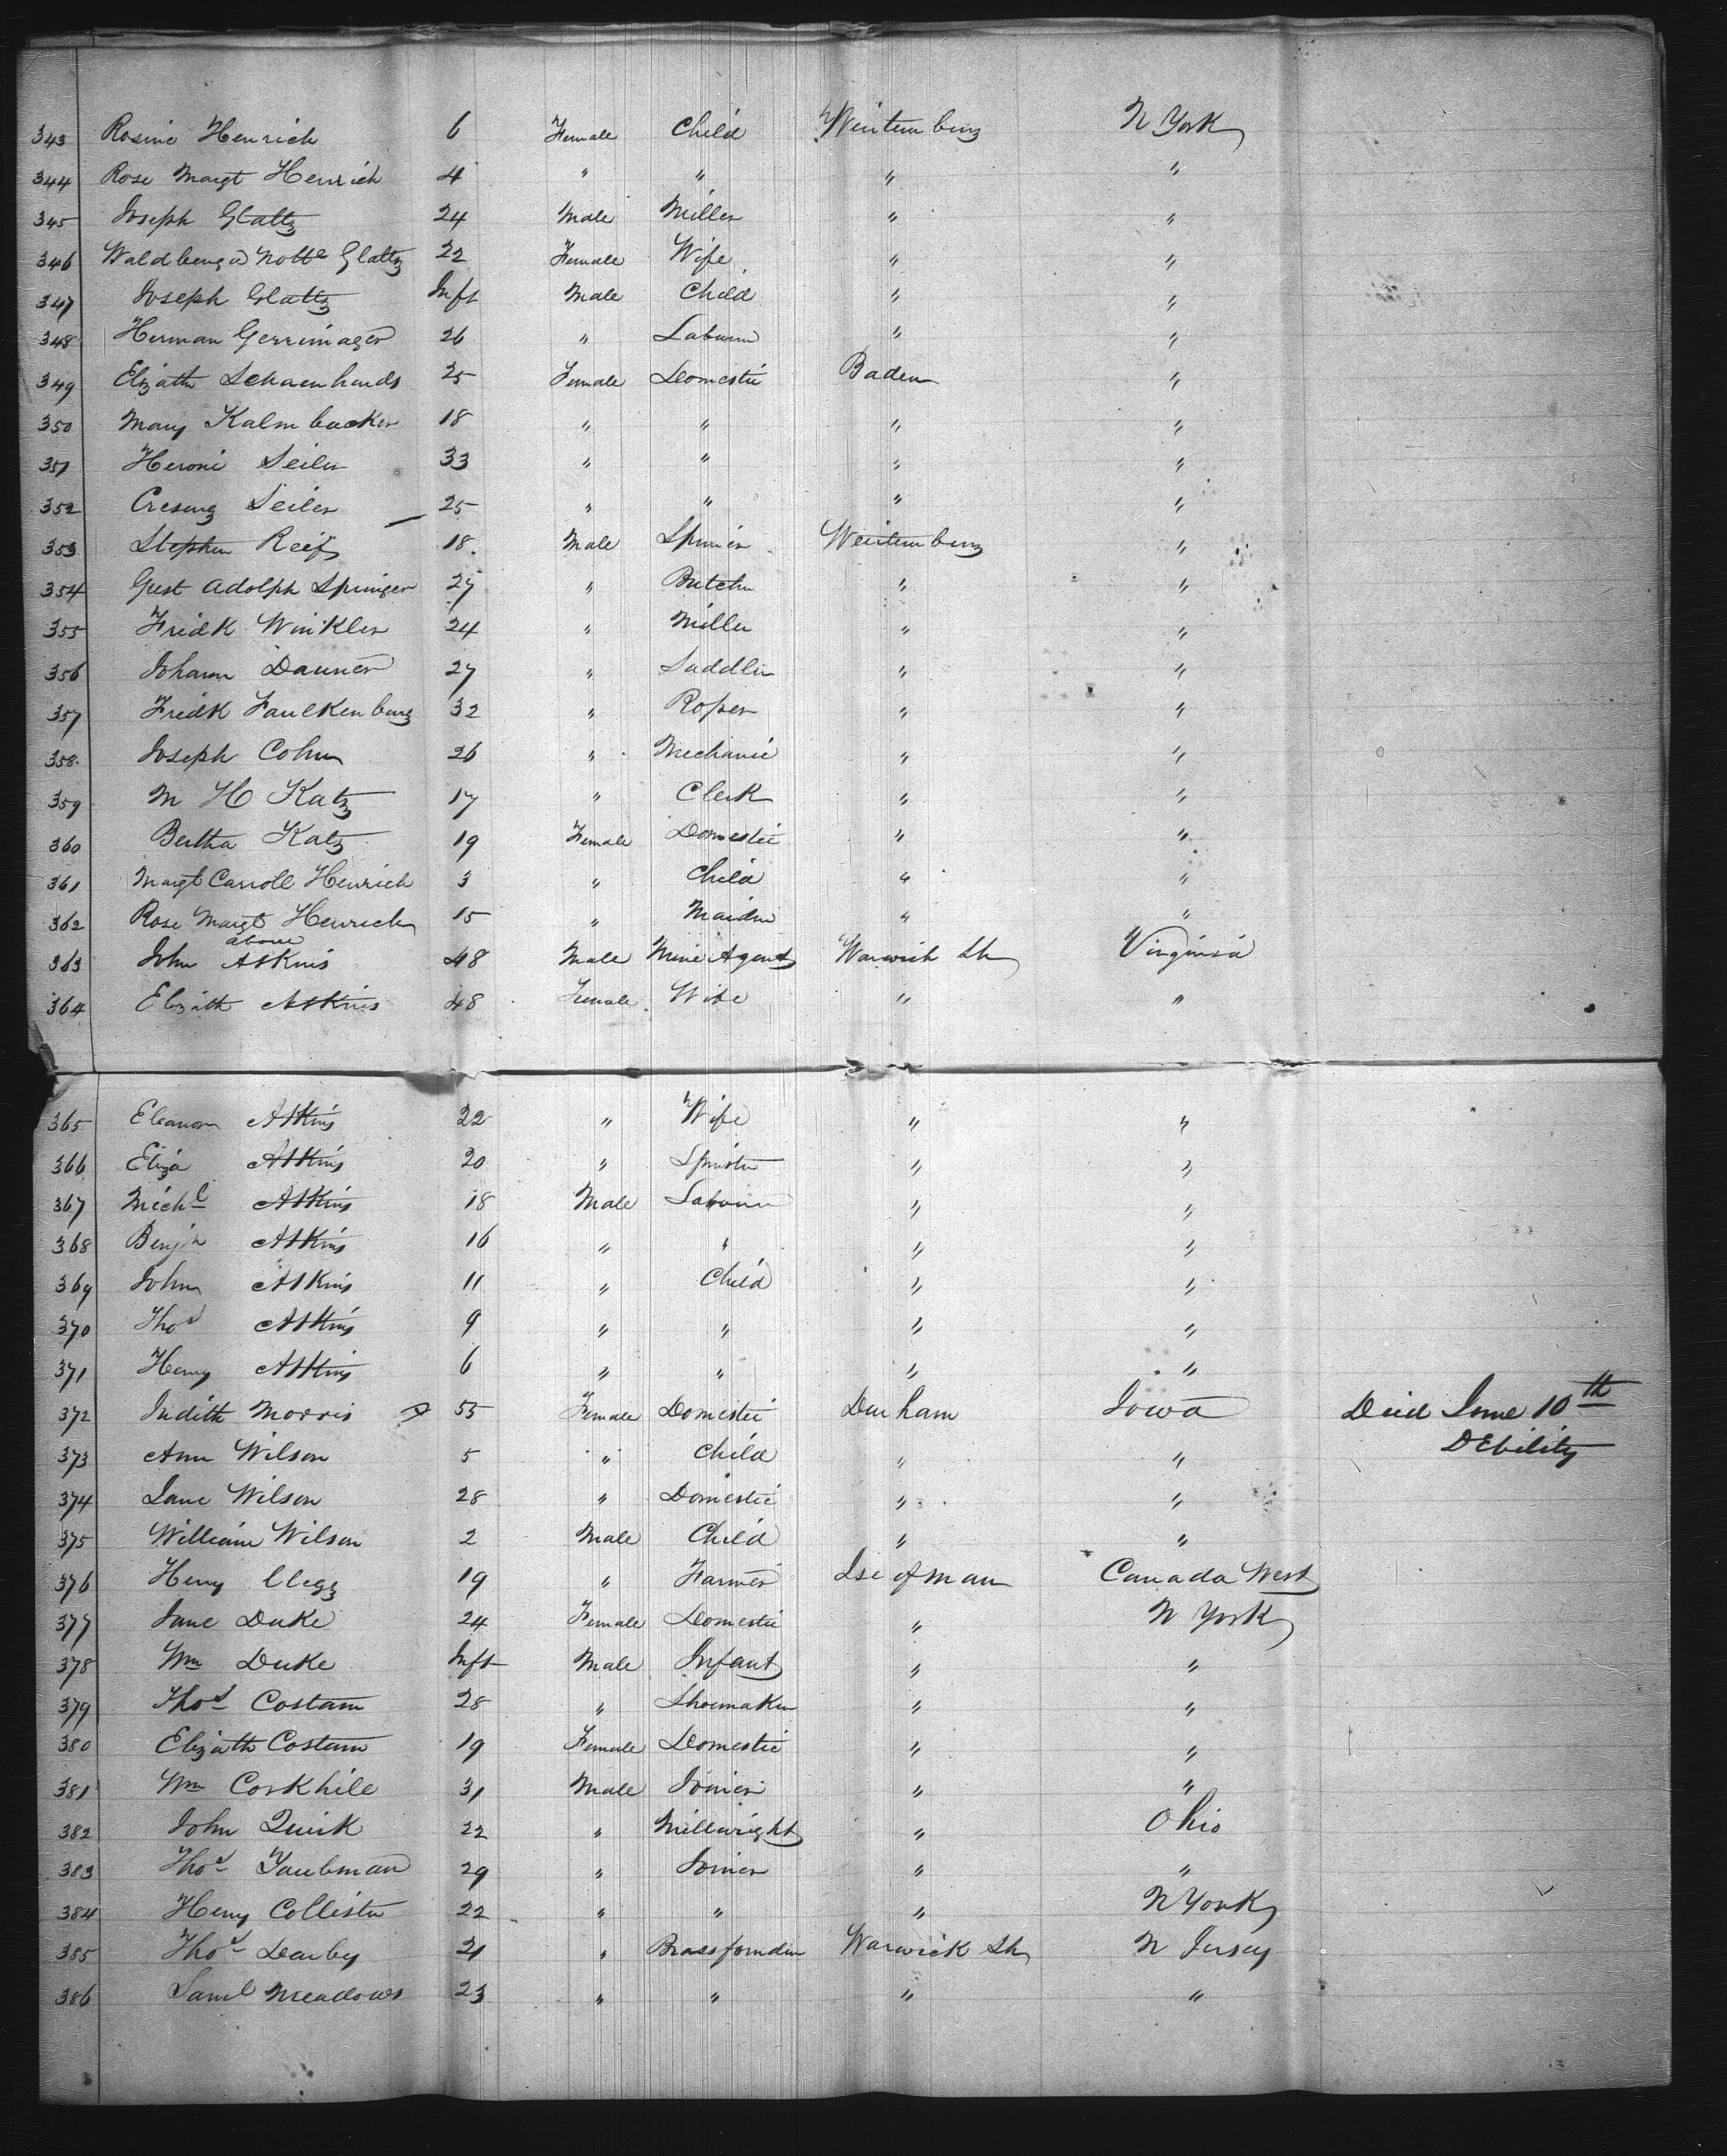 343 Rosine Henrich 6 Female Child Wurtemburg N York
344 Rose Margt Henrich 4 " " " "
345 Joseph Glattz 24 Male Miller " "
346 Waldbenga Notte Glattz 22 Female Wife " "
347 Joseph Glattz Inft Male Child " "
348 Herman Gerrimager 26 " Labourer " "
349 Elizath Schaenhards 25 Female Domestic Baden "
350 Mary Kalmbacker 18 " " " "
351 Heroni Seiler 33 " " " "
352 Cresenz Seiler 25 " " " "
353 Stephen Reif 18 Male Spinner Wurtemburg "
354 Gust Adolph Springer 27 " Butcher " "
355 Fridk Winkler 24 " Miller " "
356 Johann Dauner 27 " Saddler " "
357 Fridk Faulkenburg 32 " Roper " "
358 Joseph Cohn 26 " Mechanic " "
359 M H Katz 17 " Clerk " "
360 Bertha Katz 19 Female Domestic " "
361 Margt Carroll Henrich 3 " Child " "
362 Rose Margt Henrich 15 " Maiden " "
above
363 John Atkins 48 Male Mine Agent Warwick Sh Virginia
364 Elizath Atkins 48 Female Wife " "
365 Eleanor Atkins 22 " Wife " "
366 Eliza Atkins 20 " Spinster " "
367 Michl Atkins 18 Male Labourer " "
368 Benjn Atkins 16 " " " "
369 John Atkins 11 " Child " "
370 Thos Atkins 9 " " " "
371 Henry Atkins 6 " " " "
372 Judith Morris 55 Female Domestic Durham Iowa Died June 10th
Debility
373 Ann Wilson 5 " Child " "
374 Jane Wilson 28 " Domestic " "
375 William Wilson 2 Male Child " "
376 Henry Clegg 19 " Farmer Isle of Man Canada West
377 Jane Duke 24 Female Domestic " N York
378 Wm Duke Inft Male Infant " "
379 Thos Costam 28 " Shoemaker " "
380 Elizath Costam 19 Female Domestic " "
381 Wm Corkhile 31 Male Joiner " "
382 John Quirk 22 " Millwright " Ohio
383 Thos Taubman 29 " Joiner " "
384 Henry Collister 22 " " " N York
385 Thos Darby 21 " Brassfounder Warwick Sh N Jersey
386 Saml Meadows 23 " " " "